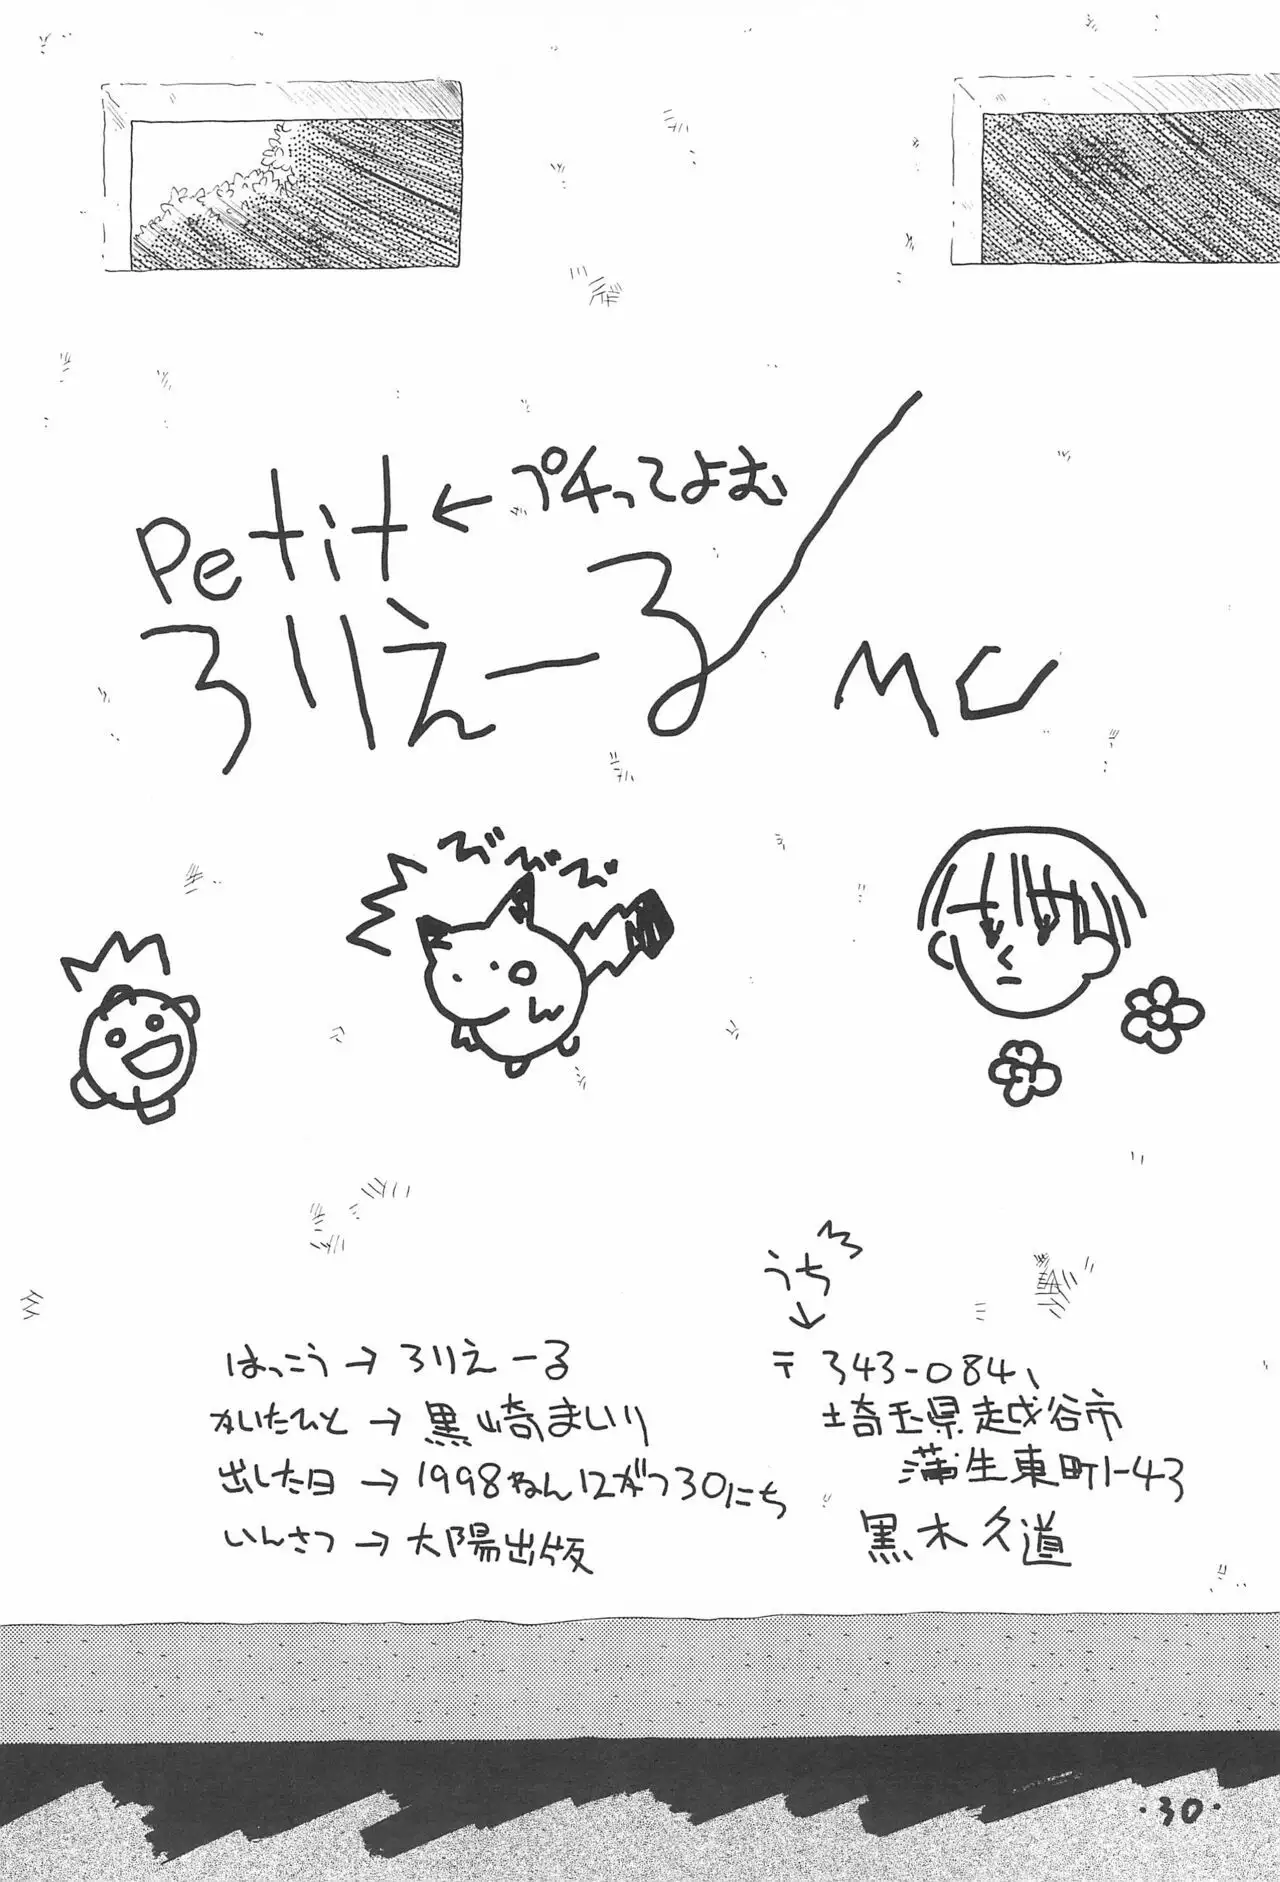 Petit ← プチってよむ
ろりえーる
MC
びびび
はっこう → ろりえーる
かいたひと → 黒崎まいり
出した日 → 1998ねん12がつ30にち
いんさつ → 大陽出版
うち
↓
〒343-0841
埼玉県越谷市
蒲生東町1-43
黒木久道
・30・